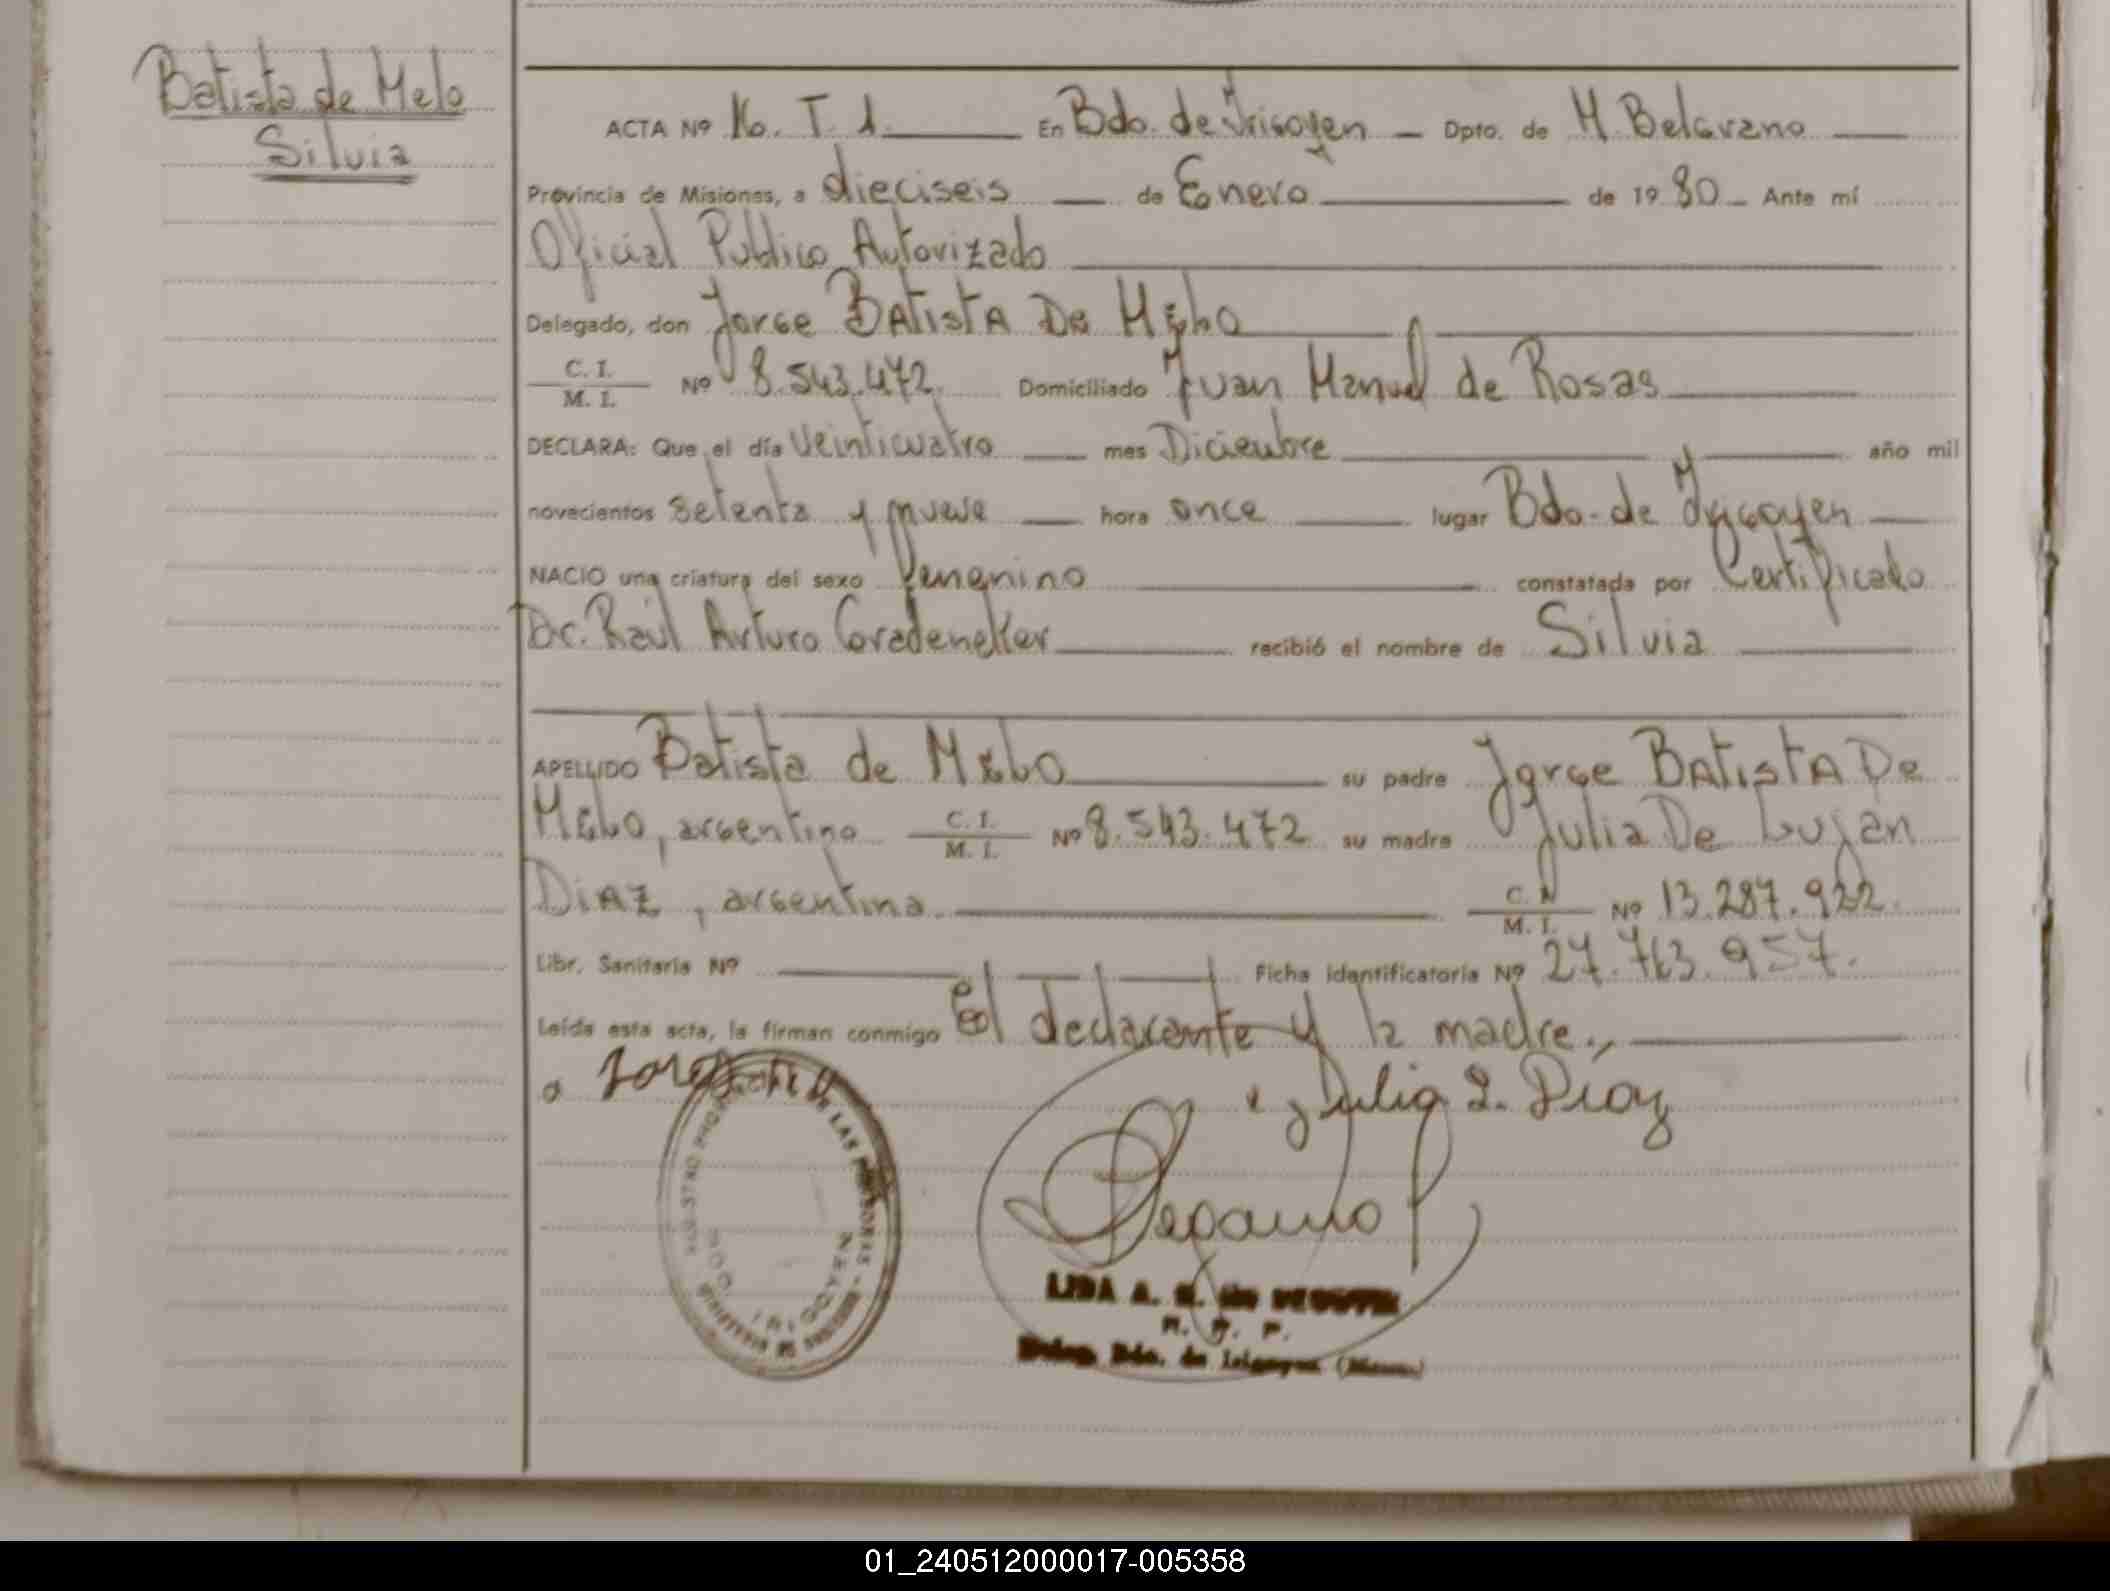 Batista de Melo
Silvia
ACTA Nº 16. T. 1. En Bdo. de Irigoyen Dpto. de M. Belgrano
Provincia de Misiones, a dieciseis de Enero de 19 80 Ante mí
Oficial Publico Autorizado
Delegado, don Jorge BAtistA De Melo
C. I. / M. I. Nº 8.543.472. Domiciliado Juan Manuel de Rosas
DECLARA: Que el día Veinticuatro mes Diciembre año mil
novecientos setenta y nueve hora once lugar Bdo. de Irigoyen
NACIO una criatura del sexo femenino constatada por Certificado
Dr. Raúl Arturo recibió el nombre de Silvia
APELLIDO Batista de Melo su padre Jorge BAtistA De
Melo, argentino C. I. / M. I. Nº 8.543.472 su madre Julia De Lujan
DiAz, argentina. C. I. / M. I. Nº 13.287.922.
Libr. Sanitaria Nº Ficha identificatoria Nº 27.763.957.
Leída esta acta, la firman conmigo El declarante y la madre.,
Jorge
Julia L. Diaz
LIDA A.
R. P.
Deleg. Bdo. de Irigoyen (Mnes.)
01_240512000017-005358